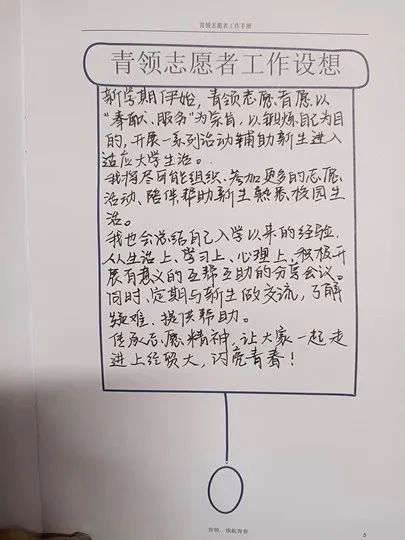 青领志愿者工作手册
青领志愿者工作设想
新学期伊始，青领志愿者愿以
“奉献、服务”为宗旨，以锻炼自己为目
的，开展一系列活动辅助新生进入
适应大学生活。
我将尽可能组织、参加更多的志愿
活动、陪伴帮助新生熟悉校园生
活。
我也会总结自己入学以来的经验，
从生活上、学习上、心理上，积极开
展有意义的互帮互助的分享会议。
同时，定期与新生做交流，了解
疑难、提供帮助。
传承志愿精神，让大家一起走
进上经贸大，闪亮青春！
青领，领航青春
5